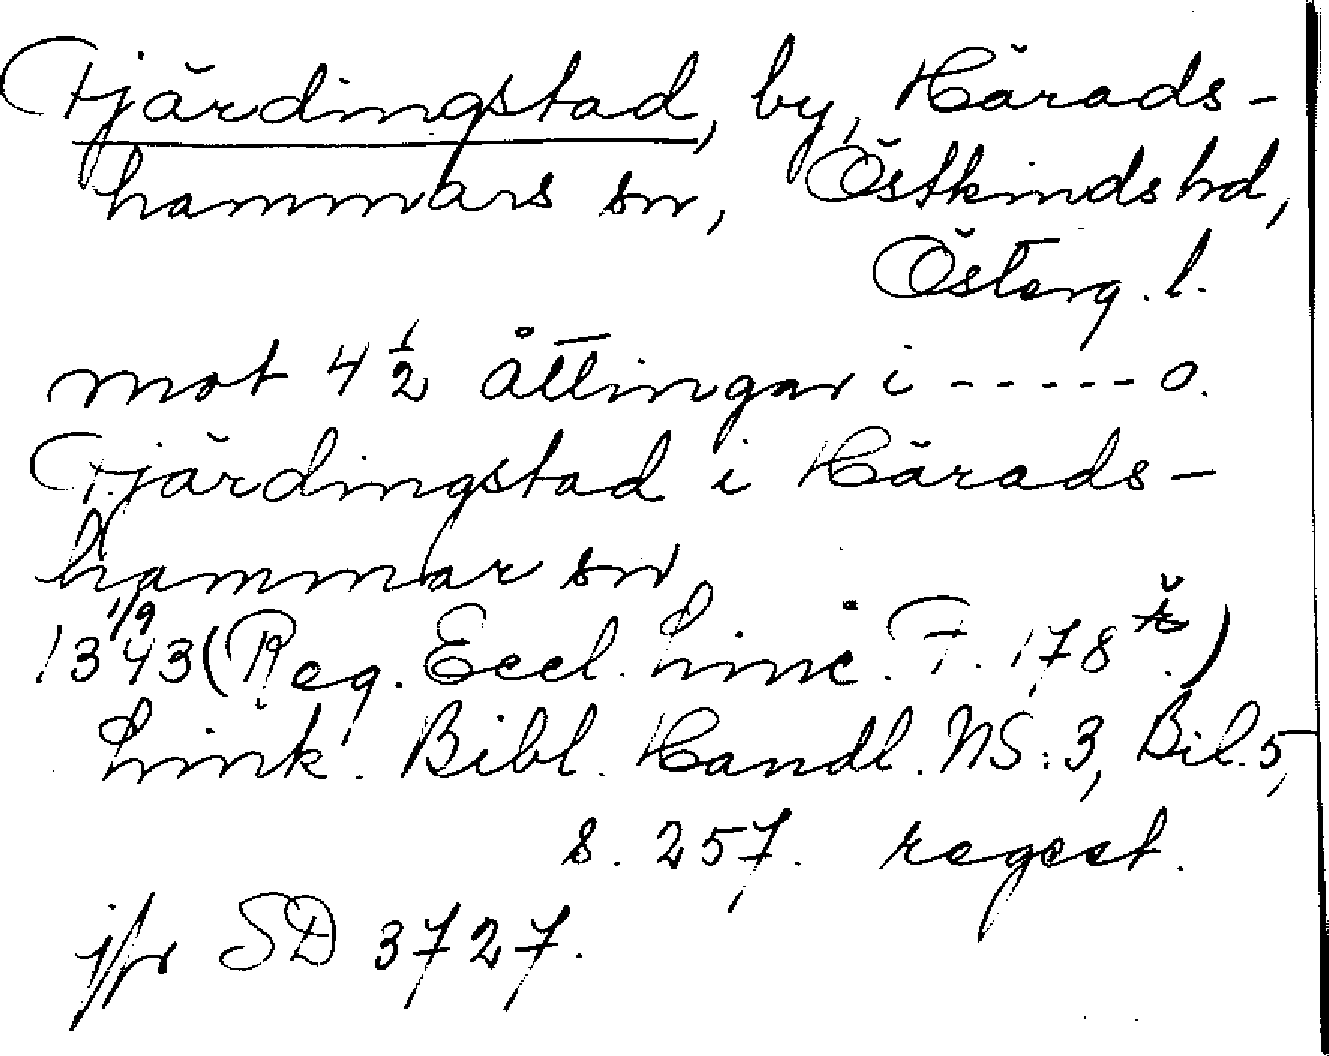 Fjärdingstad, by, Härads-
hammars sn, Östkinds hd,
Österg. l.
mot 4 1/2 åttingar i ----- o.
Fjärdingstad i Härads-
hammar sn
1343 1/9 (Reg. Eccl. Linc. F. 178 )
Link. Bibl. Handl. NS: 3, Bil. 5,
s. 257. regest.
jfr SD 3727.